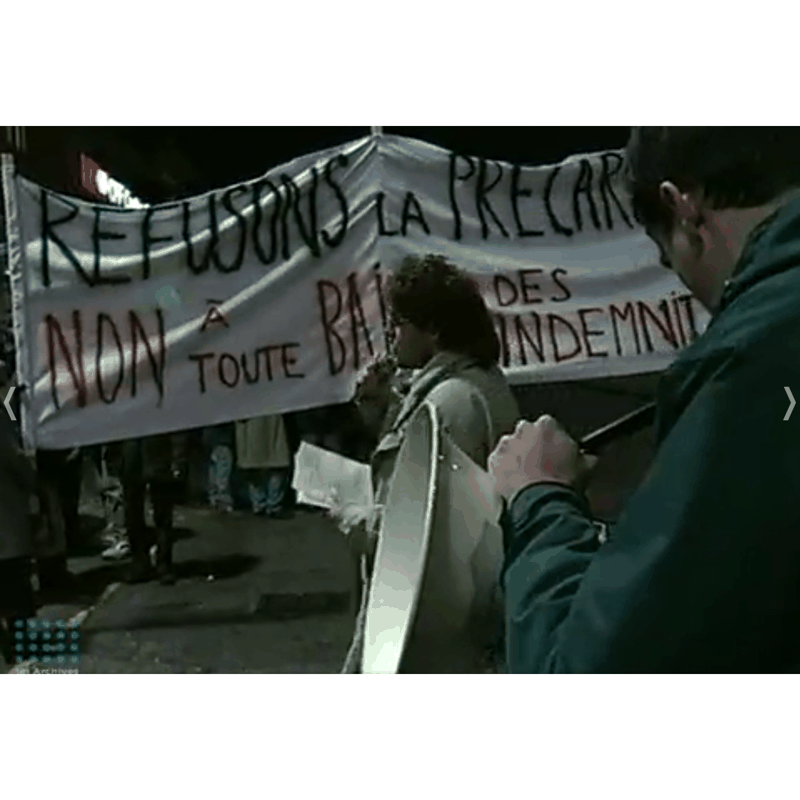 REFUSONS LA PRECAR
NON À TOUTE BAI DES INDEMNIT
Les Archives